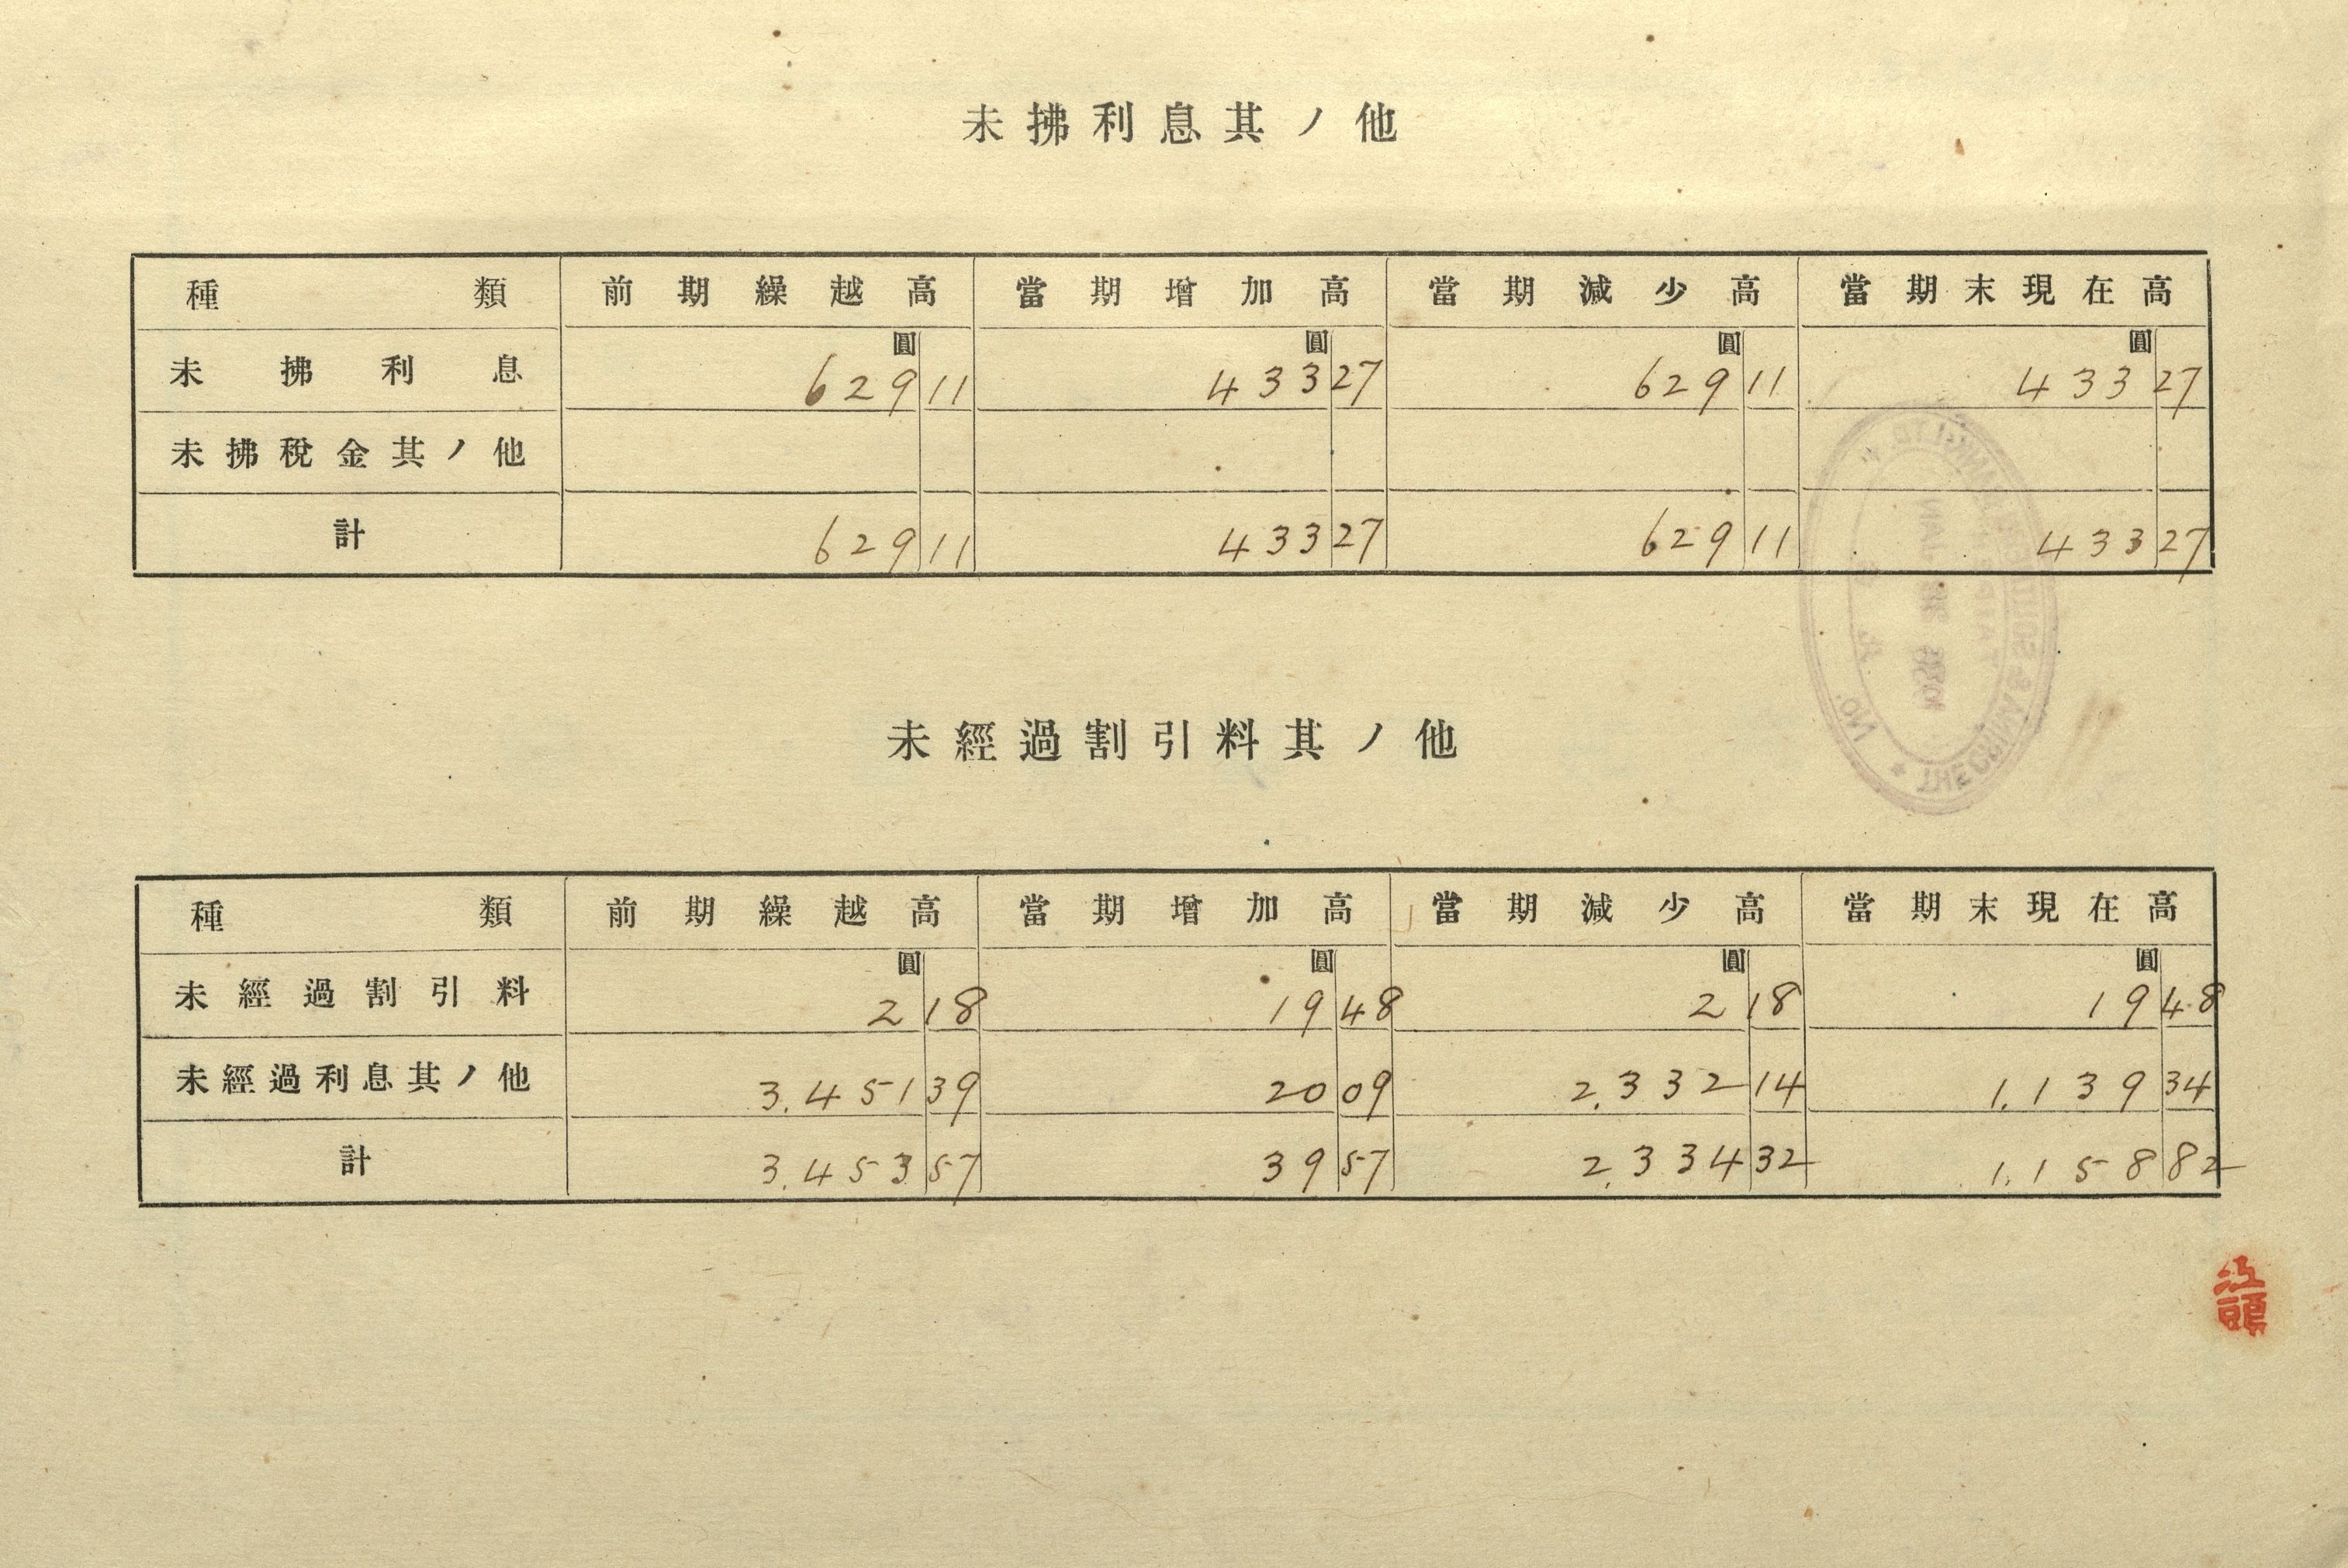 未拂利息其ノ他
種類 前期繰越高 當期增加高 當期減少高 當期末現在高
圓 圓 圓 圓
未拂利息 629 11 433 27 629 11 433 27
未拂稅金其ノ他
計 629 11 433 27 629 11 433 27
未經過割引料其ノ他
種類 前期繰越高 當期增加高 當期減少高 當期末現在高
圓 圓 圓 圓
未經過割引料 2 18 19 48 2 18 19 48
未經過利息其ノ他 3.451 39 20 09 2.332 14 1.139 34
計 3.453 57 39 57 2.334 32 1.158 82
江頭